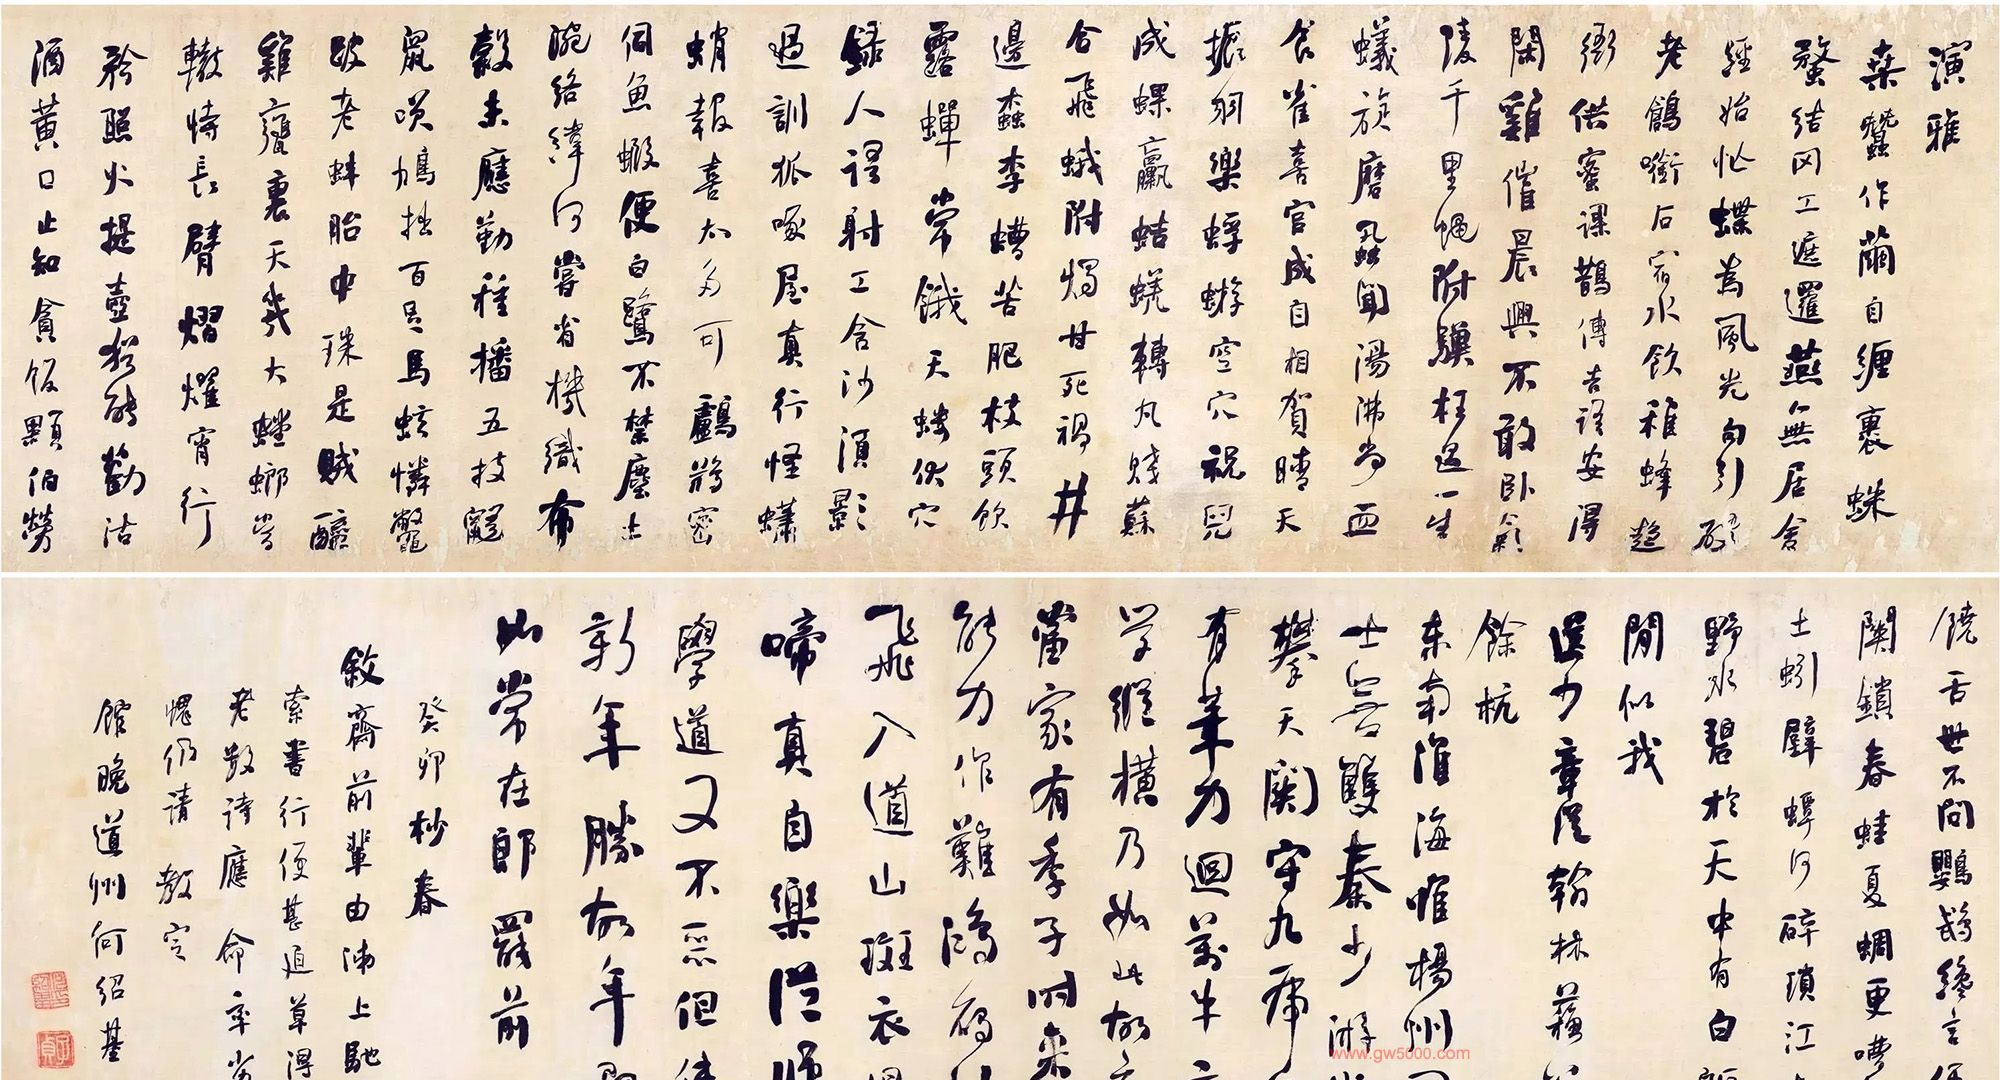 演雅
桑蠶作繭自纏裹蛛
蝥結网工遮邏燕無居舍
經始忙蝶為風光勾引破
老鶬銜石宿水飲稚蜂趨
衙供蜜課鵲傳吉語安得
閑雞催晨興不敢臥氣
陵千里蠅附驥枉過一生
蟻旋磨虱聞湯沸尚血
食雀喜宮成自相賀晴天
振羽樂蜉蝣空穴祝兒
成蜾蠃蛣蜣轉丸賤蘇
合飛蛾附燭甘死禍井
邊蠹李螬苦肥枝頭飲
露蟬常餓天螻伏穴
録人語射工含沙須影
過訓狐啄屋真行怪蠨
蛸報喜太多可鸕鶿密
伺魚蝦便白鷺不禁塵土
涴絡緯何嘗省機織布
穀未應勤種播五技鼯
鼠笑鳩拙百足馬蚿憐鱉
跛老蚌胎中珠是賊醯
雞甕裏天幾大螳螂當
轍恃長臂熠燿宵行
矜照火提壺猶能勸沽
酒黃口止知貪飯顆伯勞
饒舌世不問鸚鵡纔言便
關鎖春蛙夏蜩更嘈
土蚓壁蟫何碎瑣江
野水碧於天中有白鷗
閒似我
送少章從翰林蘇
餘杭
東南淮海惟楊州
士無雙秦少游
攀天關守九虎
有筆力迴萬牛
学縱橫乃如此故
當家有季子時來
能力作難鴻雁
飛入道山斑衣
啼真自樂從師
學道又不惡但使
新年勝故年即
如常在郎罷前
癸卯杪春
敘齋前輩由沛上馳
索書行促甚迫草得
老散詩應命率
愧仍請教定
館晚道州何紹基
www.gw5000.com